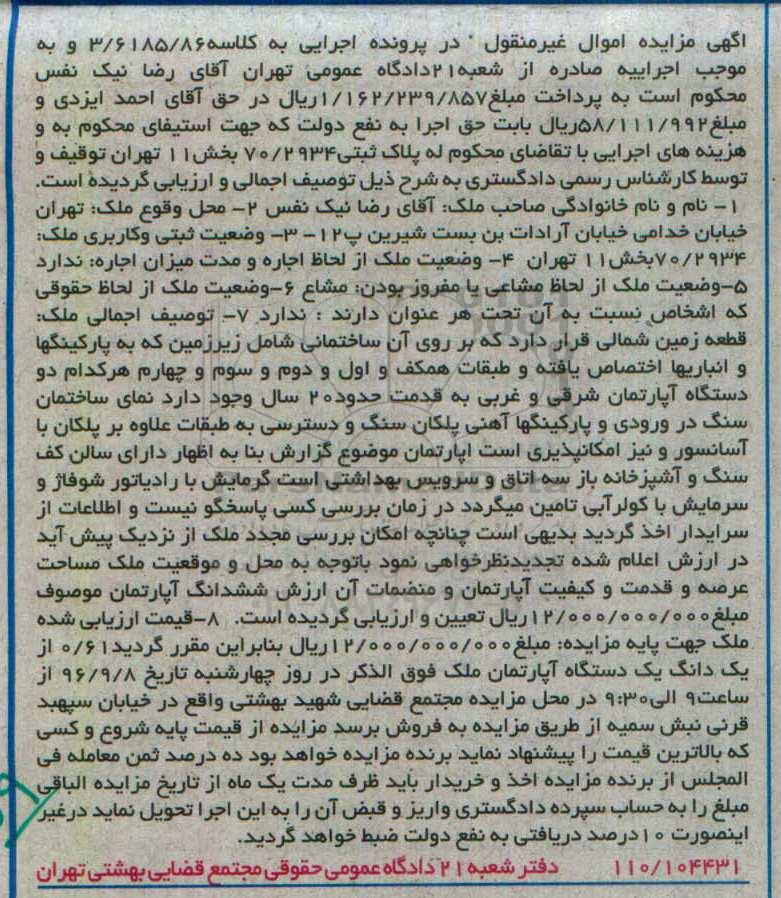 آگهی مزایده اموال غیرمنقول " در پرونده اجرایی به کلاسه۳/۶۱۸۵/۸۶ و به
موجب اجراییه صادره از شعبه۲۱دادگاه عمومی تهران آقای رضا نیک نفس
محکوم است به پرداخت مبلغ۱/۱۶۲/۲۳۹/۸۵۷ریال در حق آقای احمد ایزدی و
مبلغ۵۸/۱۱۱/۹۹۲ریال بابت حق اجرا به نفع دولت که جهت استیفای محکوم به و
هزینه های اجرایی با تقاضای محکوم له پلاک ثبتی۷۰/۲۹۳۴ بخش۱۱ تهران توقیف و
توسط کارشناس رسمی دادگستری به شرح ذیل توصیف اجمالی و ارزیابی گردیده است.
۱- نام و نام خانوادگی صاحب ملک: آقای رضا نیک نفس ۲- محل وقوع ملک: تهران
خیابان خدامی خیابان آرارات بن بست شیرین پ۱۲- ۳- وضعیت ثبتی وکاربری ملک:
۷۰/۲۹۳۴بخش۱۱ تهران ۴- وضعیت ملک از لحاظ اجاره و مدت میزان اجاره: ندارد
۵-وضعیت ملک از لحاظ مشاعی یا مفروز بودن: مشاع ۶-وضعیت ملک از لحاظ حقوقی
که اشخاص نسبت به آن تحت هر عنوان دارند : ندارد ۷- توصیف اجمالی ملک:
قطعه زمین شمالی قرار دارد که بر روی آن ساختمانی شامل زیرزمین که به پارکینگها
و انباریها اختصاص یافته و طبقات همکف و اول و دوم و سوم و چهارم هرکدام دو
دستگاه آپارتمان شرقی و غربی به قدمت حدود۲۰ سال وجود دارد نمای ساختمان
سنگ در ورودی و پارکینگها آهنی پلکان سنگ و دسترسی به طبقات علاوه بر پلکان با
آسانسور و نیز امکانپذیری است اپارتمان موضوع گزارش بنا به اظهار دارای سالن کف
سنگ و آشپزخانه باز سه اتاق و سرویس بهداشتی است گرمایش با رادیاتور شوفاژ و
سرمایش با کولرآبی تامین میگردد در زمان بررسی کسی پاسخگو نیست و اطلاعات از
سرایدار اخذ گردید بدیهی است چنانچه امکان بررسی مجدد ملک از نزدیک پیش آید
در ارزش اعلام شده تجدیدنظرخواهی نمود باتوجه به محل و موقعیت ملک مساحت
عرصه و قدمت و کیفیت آپارتمان و منضمات آن ارزش ششدانگ آپارتمان موصوف
مبلغ۱۲/۰۰۰/۰۰۰/۰۰۰ریال تعیین و ارزیابی گردیده است. ۸-قیمت ارزیابی شده
ملک جهت پایه مزایده: مبلغ۱۲/۰۰۰/۰۰۰/۰۰۰ریال بنابراین مقرر گردید۰/۶۱ از
یک دانگ یک دستگاه آپارتمان ملک فوق الذکر در روز چهارشنبه تاریخ ۹۶/۹/۸ از
ساعت۹ الی۹:۳۰ در محل مزایده مجتمع قضایی شهید بهشتی واقع در خیابان سپهبد
قرنی نبش سمیه از طریق مزایده به فروش برسد مزایده از قیمت پایه شروع و کسی
که بالاترین قیمت را پیشنهاد نماید برنده مزایده خواهد بود ده درصد ثمن معامله فی
المجلس از برنده مزایده اخذ و خریدار باید ظرف مدت یک ماه از تاریخ مزایده الباقی
مبلغ را به حساب سپرده دادگستری واریز و قبض آن را به این اجرا تحویل نماید درغیر
اینصورت ۱۰درصد دریافتی به نفع دولت ضبط خواهد گردید.
۱۱۰/۱۰۴۴۳۱ دفتر شعبه۲۱ دادگاه عمومی حقوقی مجتمع قضایی بهشتی تهران